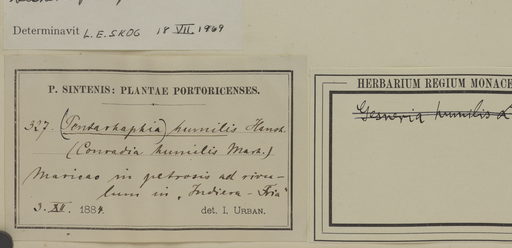 Determinavit L.E. SKOG 18 VII. 1969
P. SINTENIS: PLANTAE PORTORICENSES.
327. (Pentarhaphia) humilis Hanst.
(Conradia humilis Mart.)
Maricao in petrosis ad rivu-
lum in „Indiera-Fria"
3. XII. 1884. det. I. URBAN.
HERBARIUM REGIUM MONACE
Gesneria humilis L